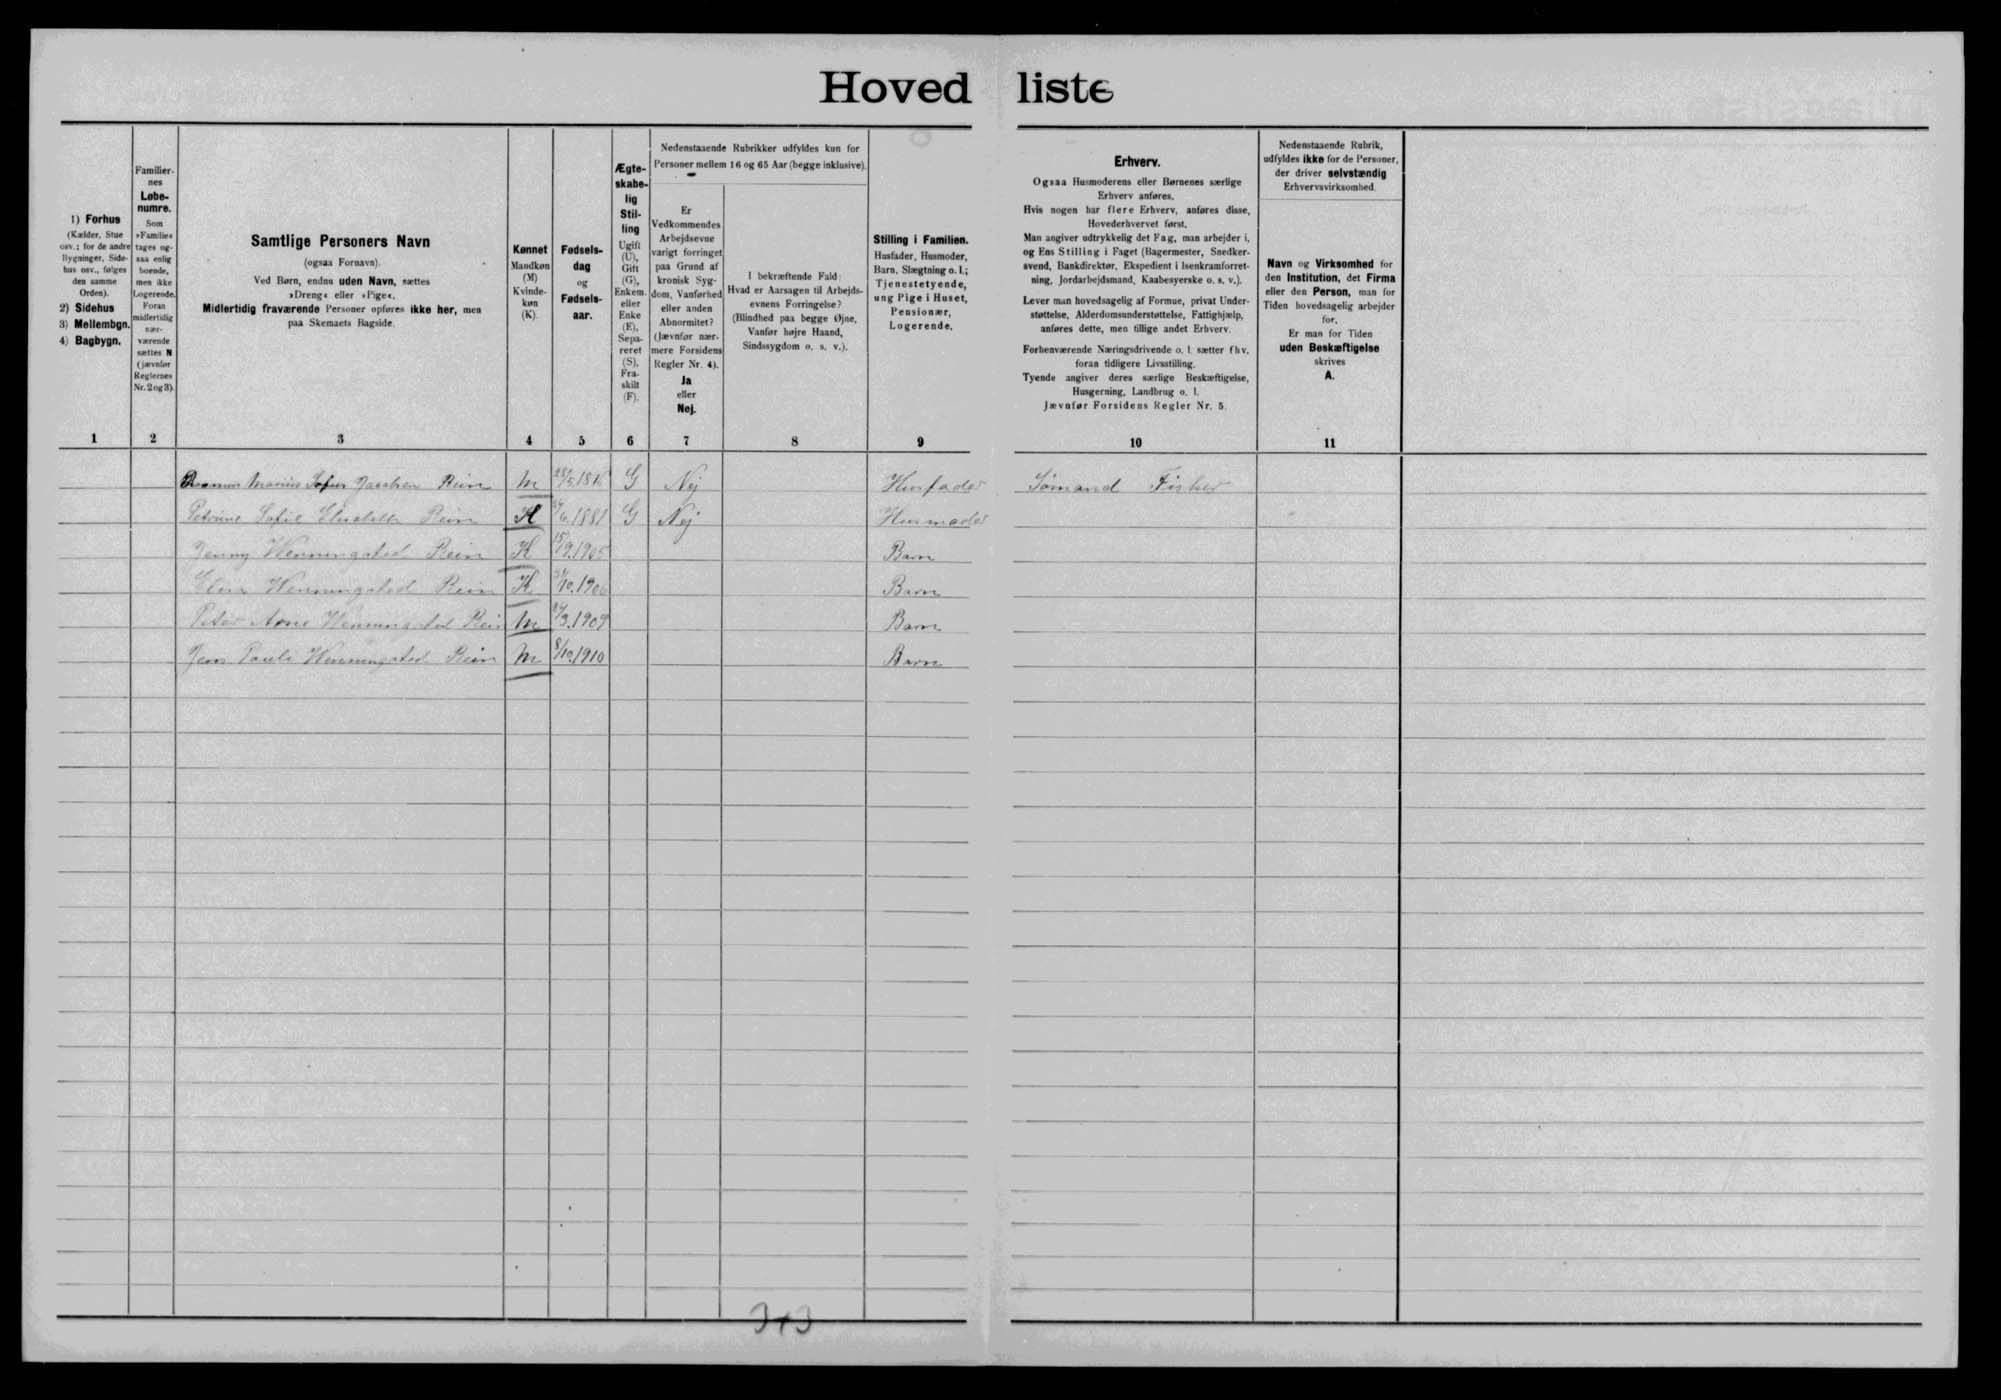 Hovedliste
1) Forhus
(Kælder, Stue
osv.; for de andre
Bygninger, Side-
hus osv., følges
den samme
Orden).
2) Sidehus
3) Mellembgn.
4) Bagbygn.
Familier-
nes
Løbe-
numre.
Som
»Familie«
tages og-
saa enlig
boende,
men ikke
Logerende.
Foran
midlertidig
nær-
værende
sættes N
(jævnfør
Reglernes
Nr. 2 og 3).
Samtlige Personers Navn
(ogsaa Fornavn).
Ved Børn, endnu uden Navn, sættes
»Dreng« eller »Pige«.
Midlertidig fraværende Personer opføres ikke her, men
paa Skemaets Bagside.
Kønnet
Mandkøn
(M)
Kvinde-
køn
(K).
Fødsels-
dag
og
Fødsels-
aar.
Ægte-
skabe-
lig
Stil-
ling
Ugift
(U),
Gift
(G),
Enkem.
eller
Enke
(E),
Sepa-
reret
(S),
Fra-
skilt
(F).
Nedenstaaende Rubrikker udfyldes kun for
Personer mellem 16 og 65 Aar (begge inklusive).
Er
Vedkommendes
Arbejdsevne
varigt forringet
paa Grund af
kronisk Syg-
dom, Vanførhed
eller anden
Abnormitet?
(Jævnfør nær-
mere Forsidens
Regler Nr. 4).
Ja
eller
Nej.
I bekræftende Fald:
Hvad er Aarsagen til Arbejds-
evnens Forringelse?
(Blindhed paa begge Øjne,
Vanfør højre Haand,
Sindssygdom o. s. v.).
Stilling i Familien.
Husfader, Husmoder,
Barn, Slægtning o. l.;
Tjenestetyende,
ung Pige i Huset,
Pensionær,
Logerende.
Erhverv.
Ogsaa Husmoderens eller Børnenes særlige
Erhverv anføres.
Hvis nogen har flere Erhverv, anføres disse,
Hovederhvervet først.
Man angiver udtrykkelig det Fag, man arbejder i,
og Ens Stilling i Faget (Bagermester, Snedker-
svend, Bankdirektør, Ekspedient i Isenkramforret-
ning, Jordarbejdsmand, Kaabesyerske o. s. v.).
Lever man hovedsagelig af Formue, privat Under-
støttelse, Alderdomsunderstøttelse, Fattighjælp,
anføres dette, men tillige andet Erhverv.
Forhenværende Næringsdrivende o. l. sætter fhv.
foran tidligere Livsstilling.
Tyende angiver deres særlige Beskæftigelse,
Husgerning, Landbrug o. l.
Jævnfør Forsidens Regler Nr. 5.
Nedenstaaende Rubrik,
udfyldes ikke for de Personer,
der driver selvstændig
Erhvervsvirksomhed.
Navn og Virksomhed for
den Institution, det Firma
eller den Person, man for
Tiden hovedsagelig arbejder
for.
Er man for Tiden
uden Beskæftigelse
skrives
A.
1 2 3 4 5 6 7 8 9 10 11
Rasmus Marius Rein M G Nej Husfader Sømand Fisker
Petrine Sofie Elisabeth Rein K 1881 G Nej Husmoder
Jenny Wenningsted Rein K 15/9.1905 Barn
Wenningsted Rein K 1906 Barn
Peter Arne Wenningsted Rein M 1909 Barn
Jens Pauli Wenningsted Rein M 8/10.1910 Barn
3+3